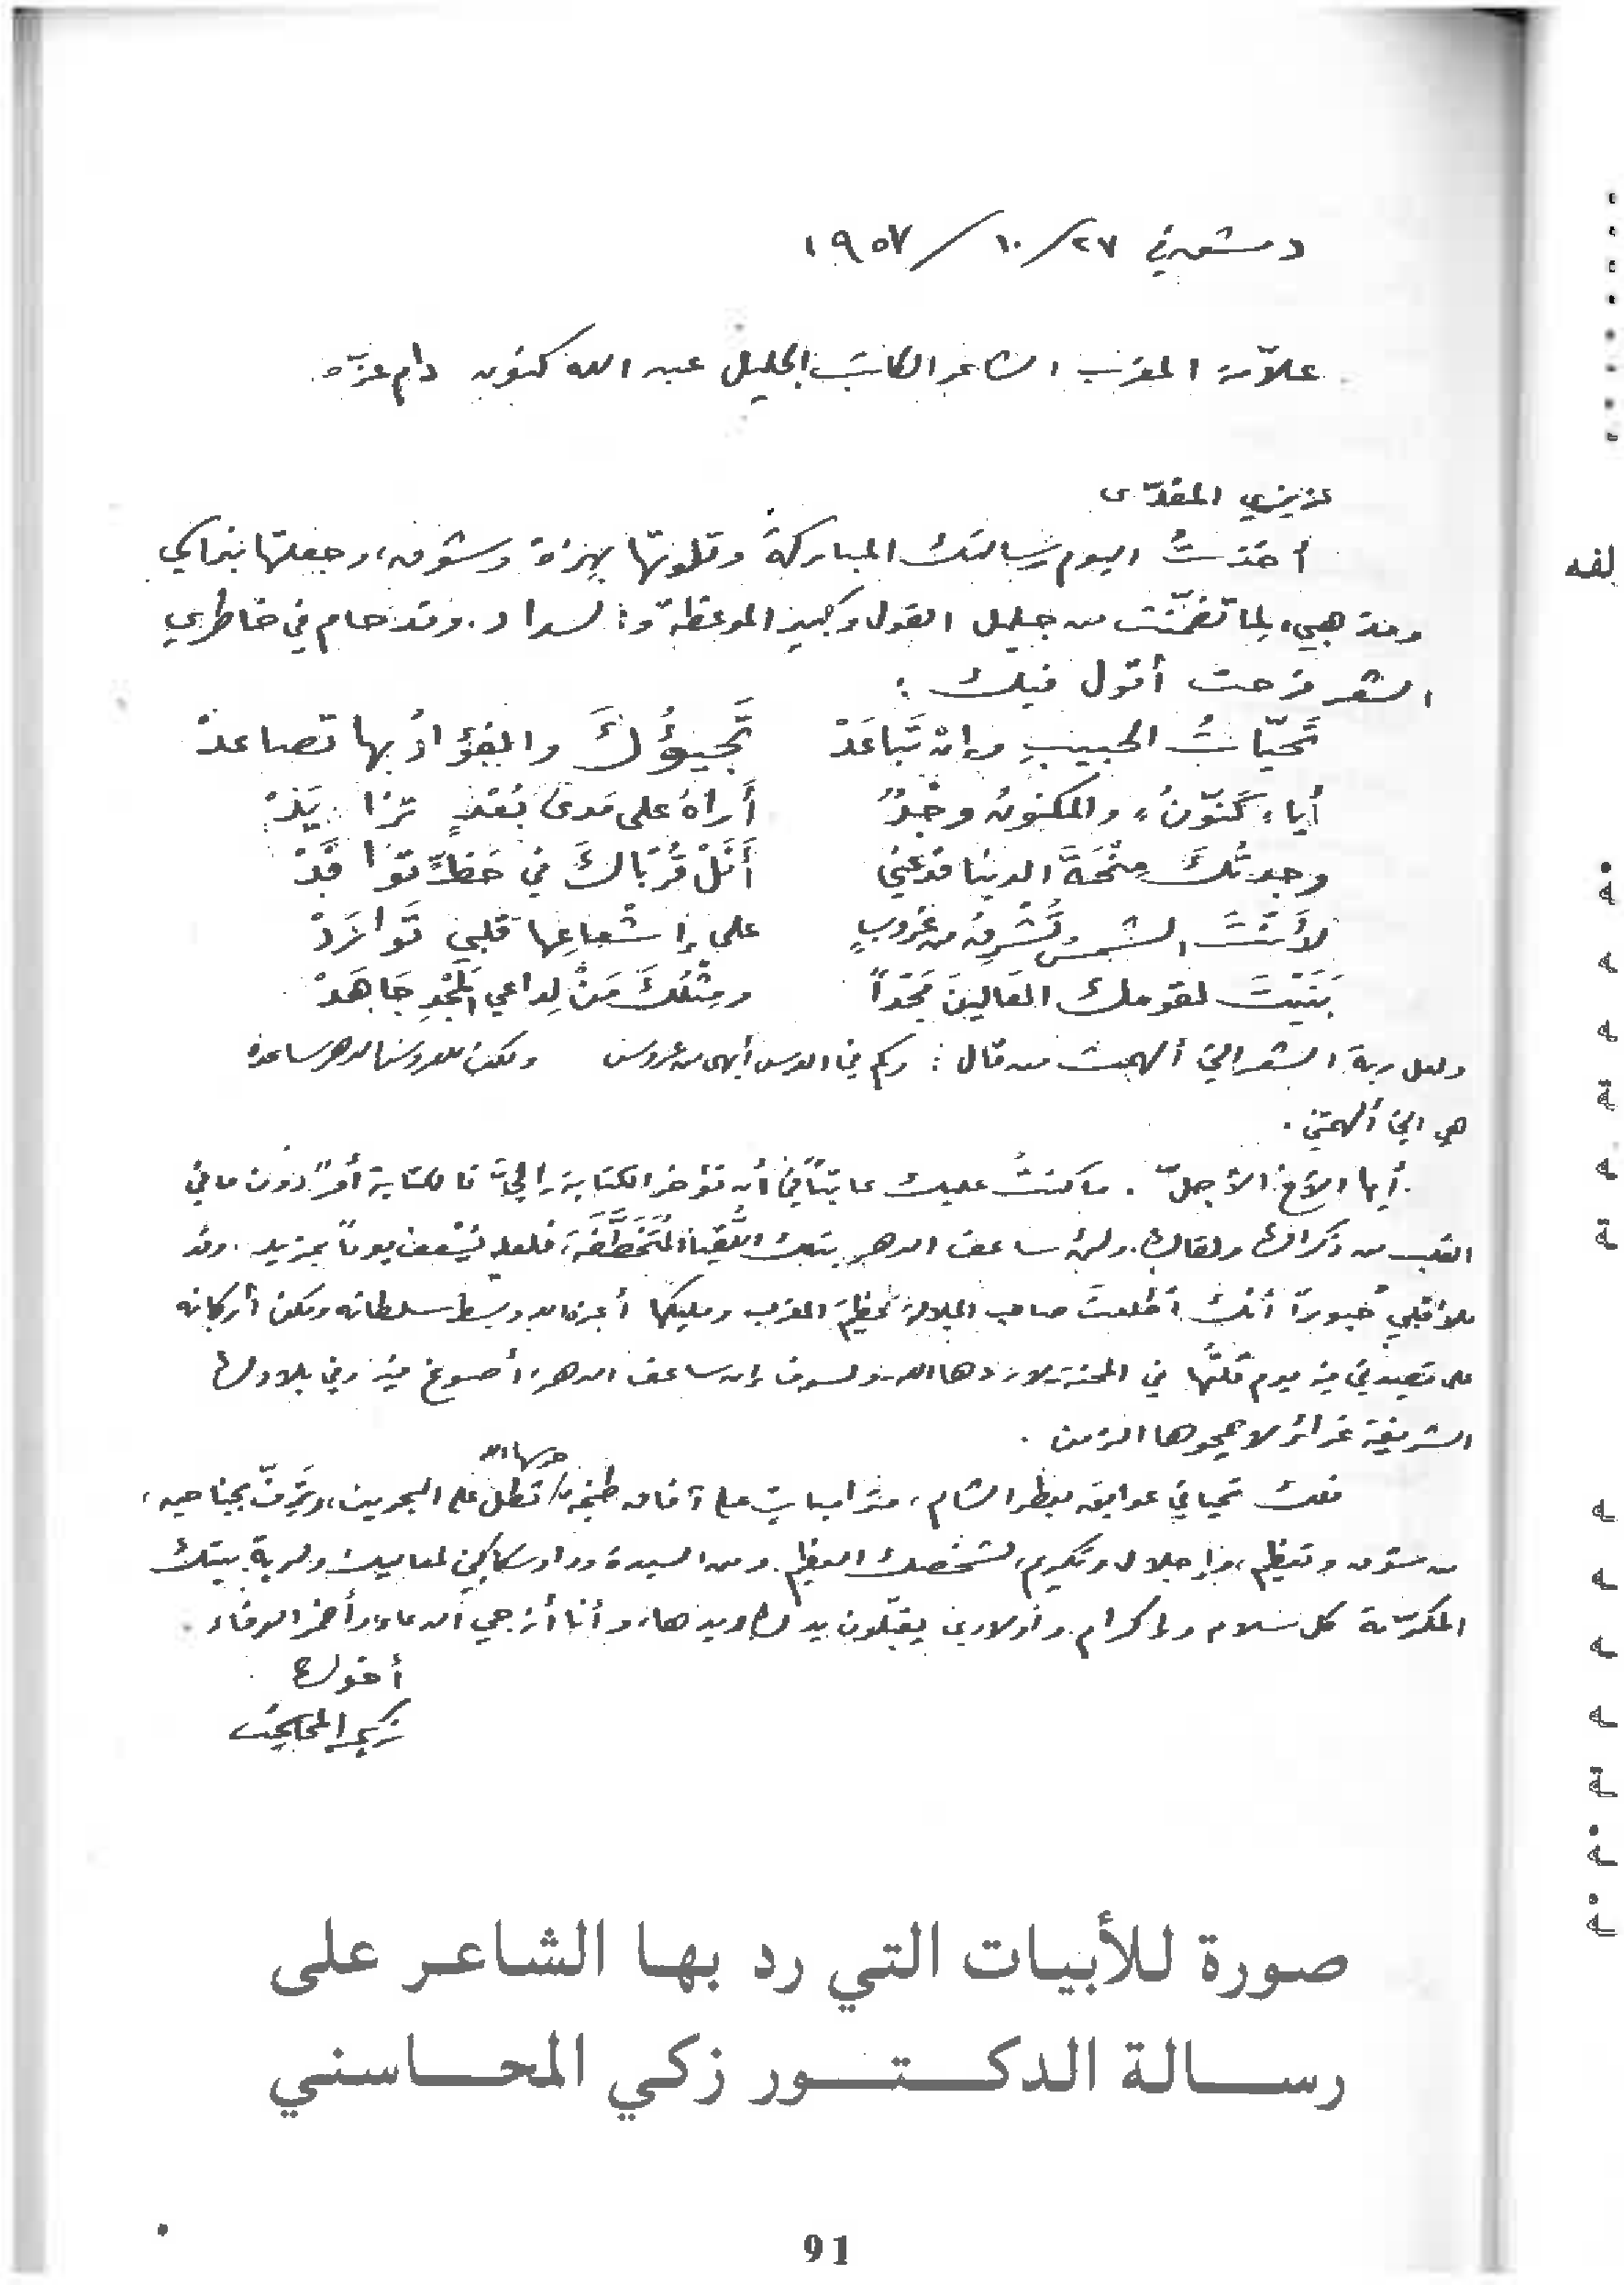 دمشق في ٢٧/١٠/١٩٥٧
علاّمة المغرب الشاعر الكاتب الجليل عبد الله كنون دام عزّه.
عزيزي المفدّى
أخذتُ اليوم رسالتك المباركة وتلوتها بهزة وشوق، وجعلتها بتراكي
ومذهبي، لما تضمّنت من جليل القول وكبير الموعظة والسداد. وقد حام في خاطري
الشعر فرحت أقول فيك :
تحيّاتُ الحبيبِ وإن تَباعَدْ تَجيؤُكَ والفؤادُ بها تصاعدْ
أيا، كَنّونُ، والمكنونُ وجْدٌ أَراهُ على مَدى بُعْدٍ تزايَدْ
وجدتُكَ مِنْحَةَ الدنيا فدعني أَنَلْ قُرْبَاكَ في حَظٍّ تَوافَدْ
لأَنتَ الشمس تُشْرِقُ من غروبٍ على إشعاعِها قلبي تَوارَدْ
بَنَيْتَ لقومك الغالينَ مَجْداً ومِثْلُكَ مَنْ لِداعي المَجْدِ جَاهَدْ
ولعل ربة الشعر التي ألهمت من قال : وكم في العرس أبهى من عروس ولكن للعروس الدهر ساعد
هي التي ألهمتني .
أيها الأخ الأجلّ . ما كنتُ عليك عاتباً في أن تؤخر الكتابة إليّ فالكتابة أمرٌ دون ما في
القلب من ذكراك ولقاك. ولئن ساعف الدهر بتلك اللُّقْيا المُتَخَطَّفَة، فلعله يُسْعف يوماً بمزيد. وقد
ملأ قلبي حبوراً أنك أطلعتَ صاحب الجلالة عظيم المغرب ومليكها أعزه الله وبسط سلطانه ومكن أركانه
على قصيدتي فيه يوم قلتُها في المحنة لا ردها الله ولسوف إن ساعف الدهر، أصوغ فيه وفي بلادك
الشريفة غرائر لا يمحوها الزمن .
فلك تحياتي عوابق بعطر الشام، متراميات على آفاق طنجة حرسها الله تطل على البحرين، وتَرِفّ بجناحيه،
من شوق وتعظيم، وإجلال وتكريم، لشخصك العظيم. ومن السيدة وداد سكاكيني لمعاليك ولربة بيتك
المكرّمة كل سلام وإكرام. وأولادي يقبّلون يدك ويدها، وأنا أزجي الدعاء وأحفز الوفاء
أخوك
زكي المحاسني
صورة للأبيات التي رد بها الشاعر على
رسالة الدكتور زكي المحاسني
91